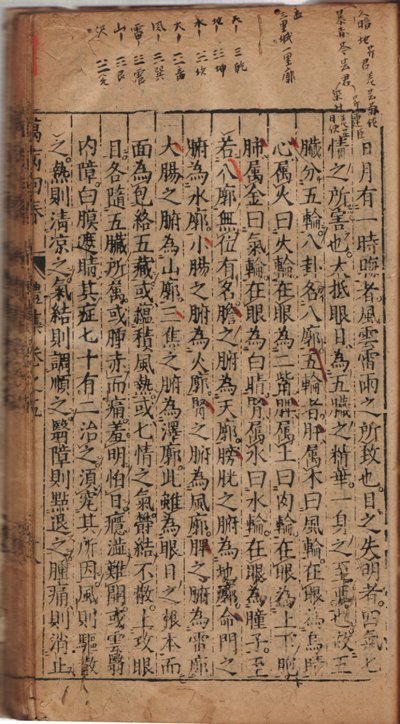 日月有一時晦者風雲雷雨之所致也目之失明者四氣七
情之所害也大抵眼目為五臟之精華一身之至要也故五
臟分五輪八卦名八廓五輪者肝屬木曰風輪在眼為烏睛
心屬火曰火輪在眼為二眥脾屬土曰肉輪在眼為上下胞
肺屬金曰氣輪在眼為白睛腎屬水曰水輪在眼為瞳子至
若八廓無位有名膽之腑為天廓膀胱之腑為地廓命門之
腑為水廓小腸之腑為火廓腎之腑為風廓脾之腑為雷廓
大腸之腑為山廓三焦之腑為澤廓此雖為眼目之根本而
面為包絡五藏或蘊積風熱或七情之氣鬱結不散上攻眼
目各隨五臟所屬或腫赤而痛羞明怕日癮澀難開或雲翳
內障白膜遮睛其症七十有二治之須究其所因風則驅散
之熱則清涼之氣結則調順之翳障則點退之腫痛則消止
萬病回春
卷之五
三里城一里廓
地 坤
水 坎
風 巽
雷 震
山 艮